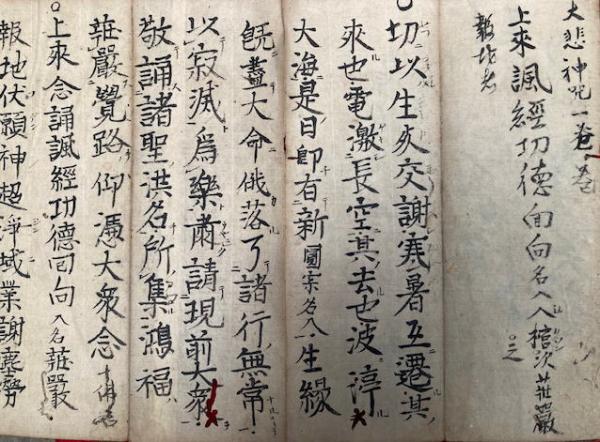 大悲神咒一卷
上來諷經功德回向名入入棺次莊嚴
報地
○切以生死交謝寒暑互遷其
來也電激長空其去也波渟
大海是日卽有新圓寂名入生緣
既盡大命俄落了諸行無常
以寂滅爲樂肅請現前大衆
敬誦諸聖洪名所集鴻福
莊嚴覺路仰憑大衆念
○上來念誦諷經功德回向入名莊嚴
報地伏願神超淨域業謝塵勞